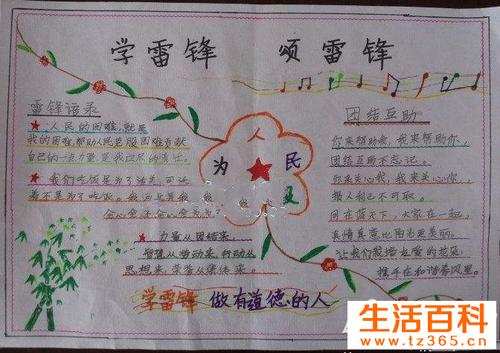 学雷锋 颂雷锋
雷锋语录
★人民的困难,就是
我的困难,帮助人民克服困难贡献
自己的一点力量,是我应尽的责任。
★我们吃饭是为了活着,可活
着不是为了吃饭。我活着是
全心全意
★力量从团结来,
智慧从劳动来,行动从
思想来,荣誉从集体来。
为人民
团结互助
你来帮助我,我来帮助你,
团结互助不忘记。
你来关心我,我来关心你,
损人利己不可取。
同在蓝天下,大家在一起,
真情真意
让我们栽培友爱的花朵,
携手在和谐春风里。
学雷锋 做有道德的人
生活百科
www.tz365.cn